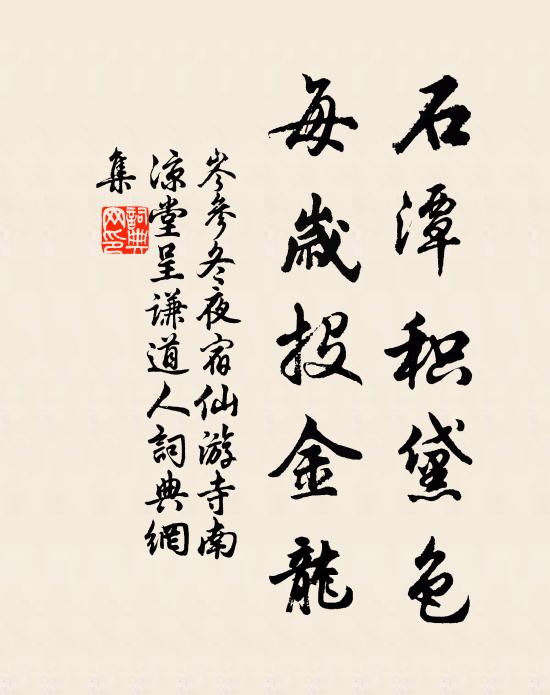 石潭积黛色
每岁投金龍
岑参冬夜宿仙游寺南
凉堂呈谦道人詞典網
集
詞典
网印